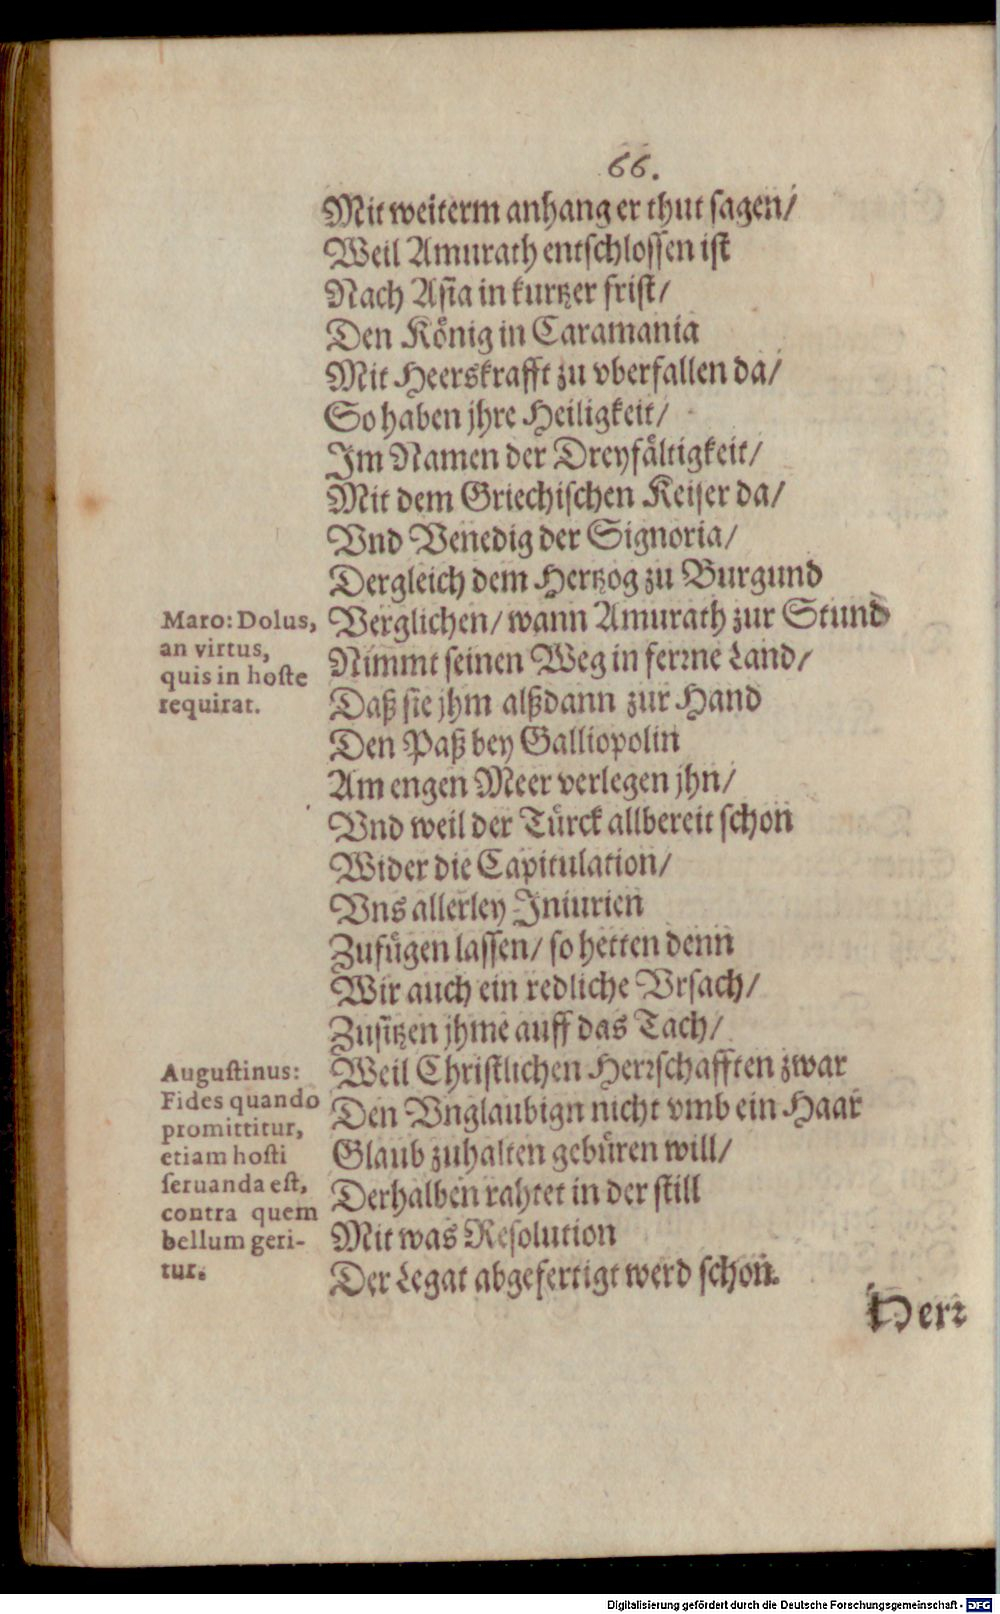 66.
Mit weiterm anhang er thut sagen/
Weil Amurath entschlossen ist
Nach Asia in kurtzer frist/
Den König in Caramania
Mit Heerskrafft zu vberfallen da/
So haben jhre Heiligkeit/
Im Namen der Dreyfältigkeit/
Mit dem Griechischen Keiser da/
Vnd Venedig der Signoria/
Dergleich dem Hertzog zu Burgund
Verglichen/ wann Amurath zur Stund
Nimmt seinen Weg in ferrne Land/
Daß sie jhm alßdann zur Hand
Den Paß bey Galliopolin
Am engen Meer verlegen jhn/
Vnd weil der Türck allbereit schon
Wider die Capitulation/
Vns allerley Iniurien
Zufügen lassen/ so hetten denn
Wir auch ein redliche Vrsach/
Zusitzen jhme auff das Tach/
Weil Christlichen Herrschafften zwar
Den Vnglaubign nicht vmb ein Haar
Glaub zuhalten gebüren will/
Derhalben rahtet in der still
Mit was Resolution
Der Legat abgefertigt werd schon.
Maro: Dolus,
an virtus,
quis in hoste
requirat.
Augustinus:
Fides quando
promittitur,
etiam hosti
seruanda est,
contra quem
bellum geri-
tur.
Herr
Digitalisierung gefördert durch die Deutsche Forschungsgemeinschaft - DFG